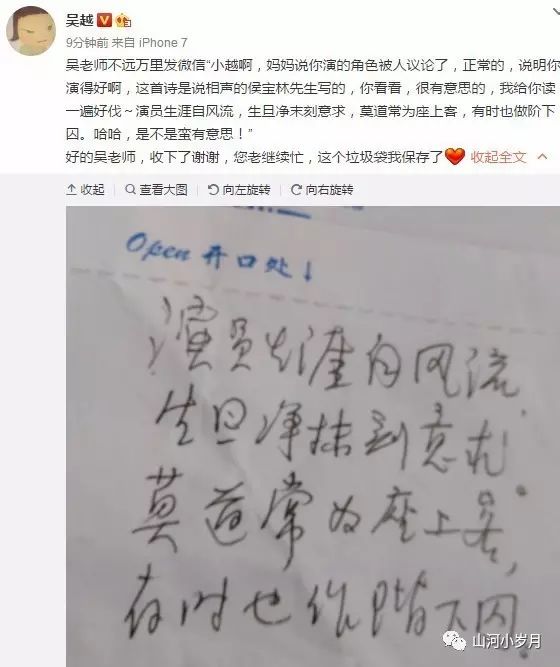 吴越
9分钟前 来自 iPhone 7
吴老师不远万里发微信“小越啊，妈妈说你演的角色被人议论了，正常的，说明你
演得好啊，这首诗是说相声的侯宝林先生写的，你看看，很有意思的，我给你读
一遍好伐～演员生涯自风流，生旦净末刻意求，莫道常为座上客，有时也做阶下
囚。哈哈，是不是蛮有意思！”
好的吴老师，收下了谢谢，您老继续忙，这个垃圾袋我保存了 收起全文
收起 查看大图 向左旋转 向右旋转
Open 开口处↓
演员生涯自风流，
生旦净抹刻意求
莫道常为座上客，
有时也作阶下囚。
山河小岁月